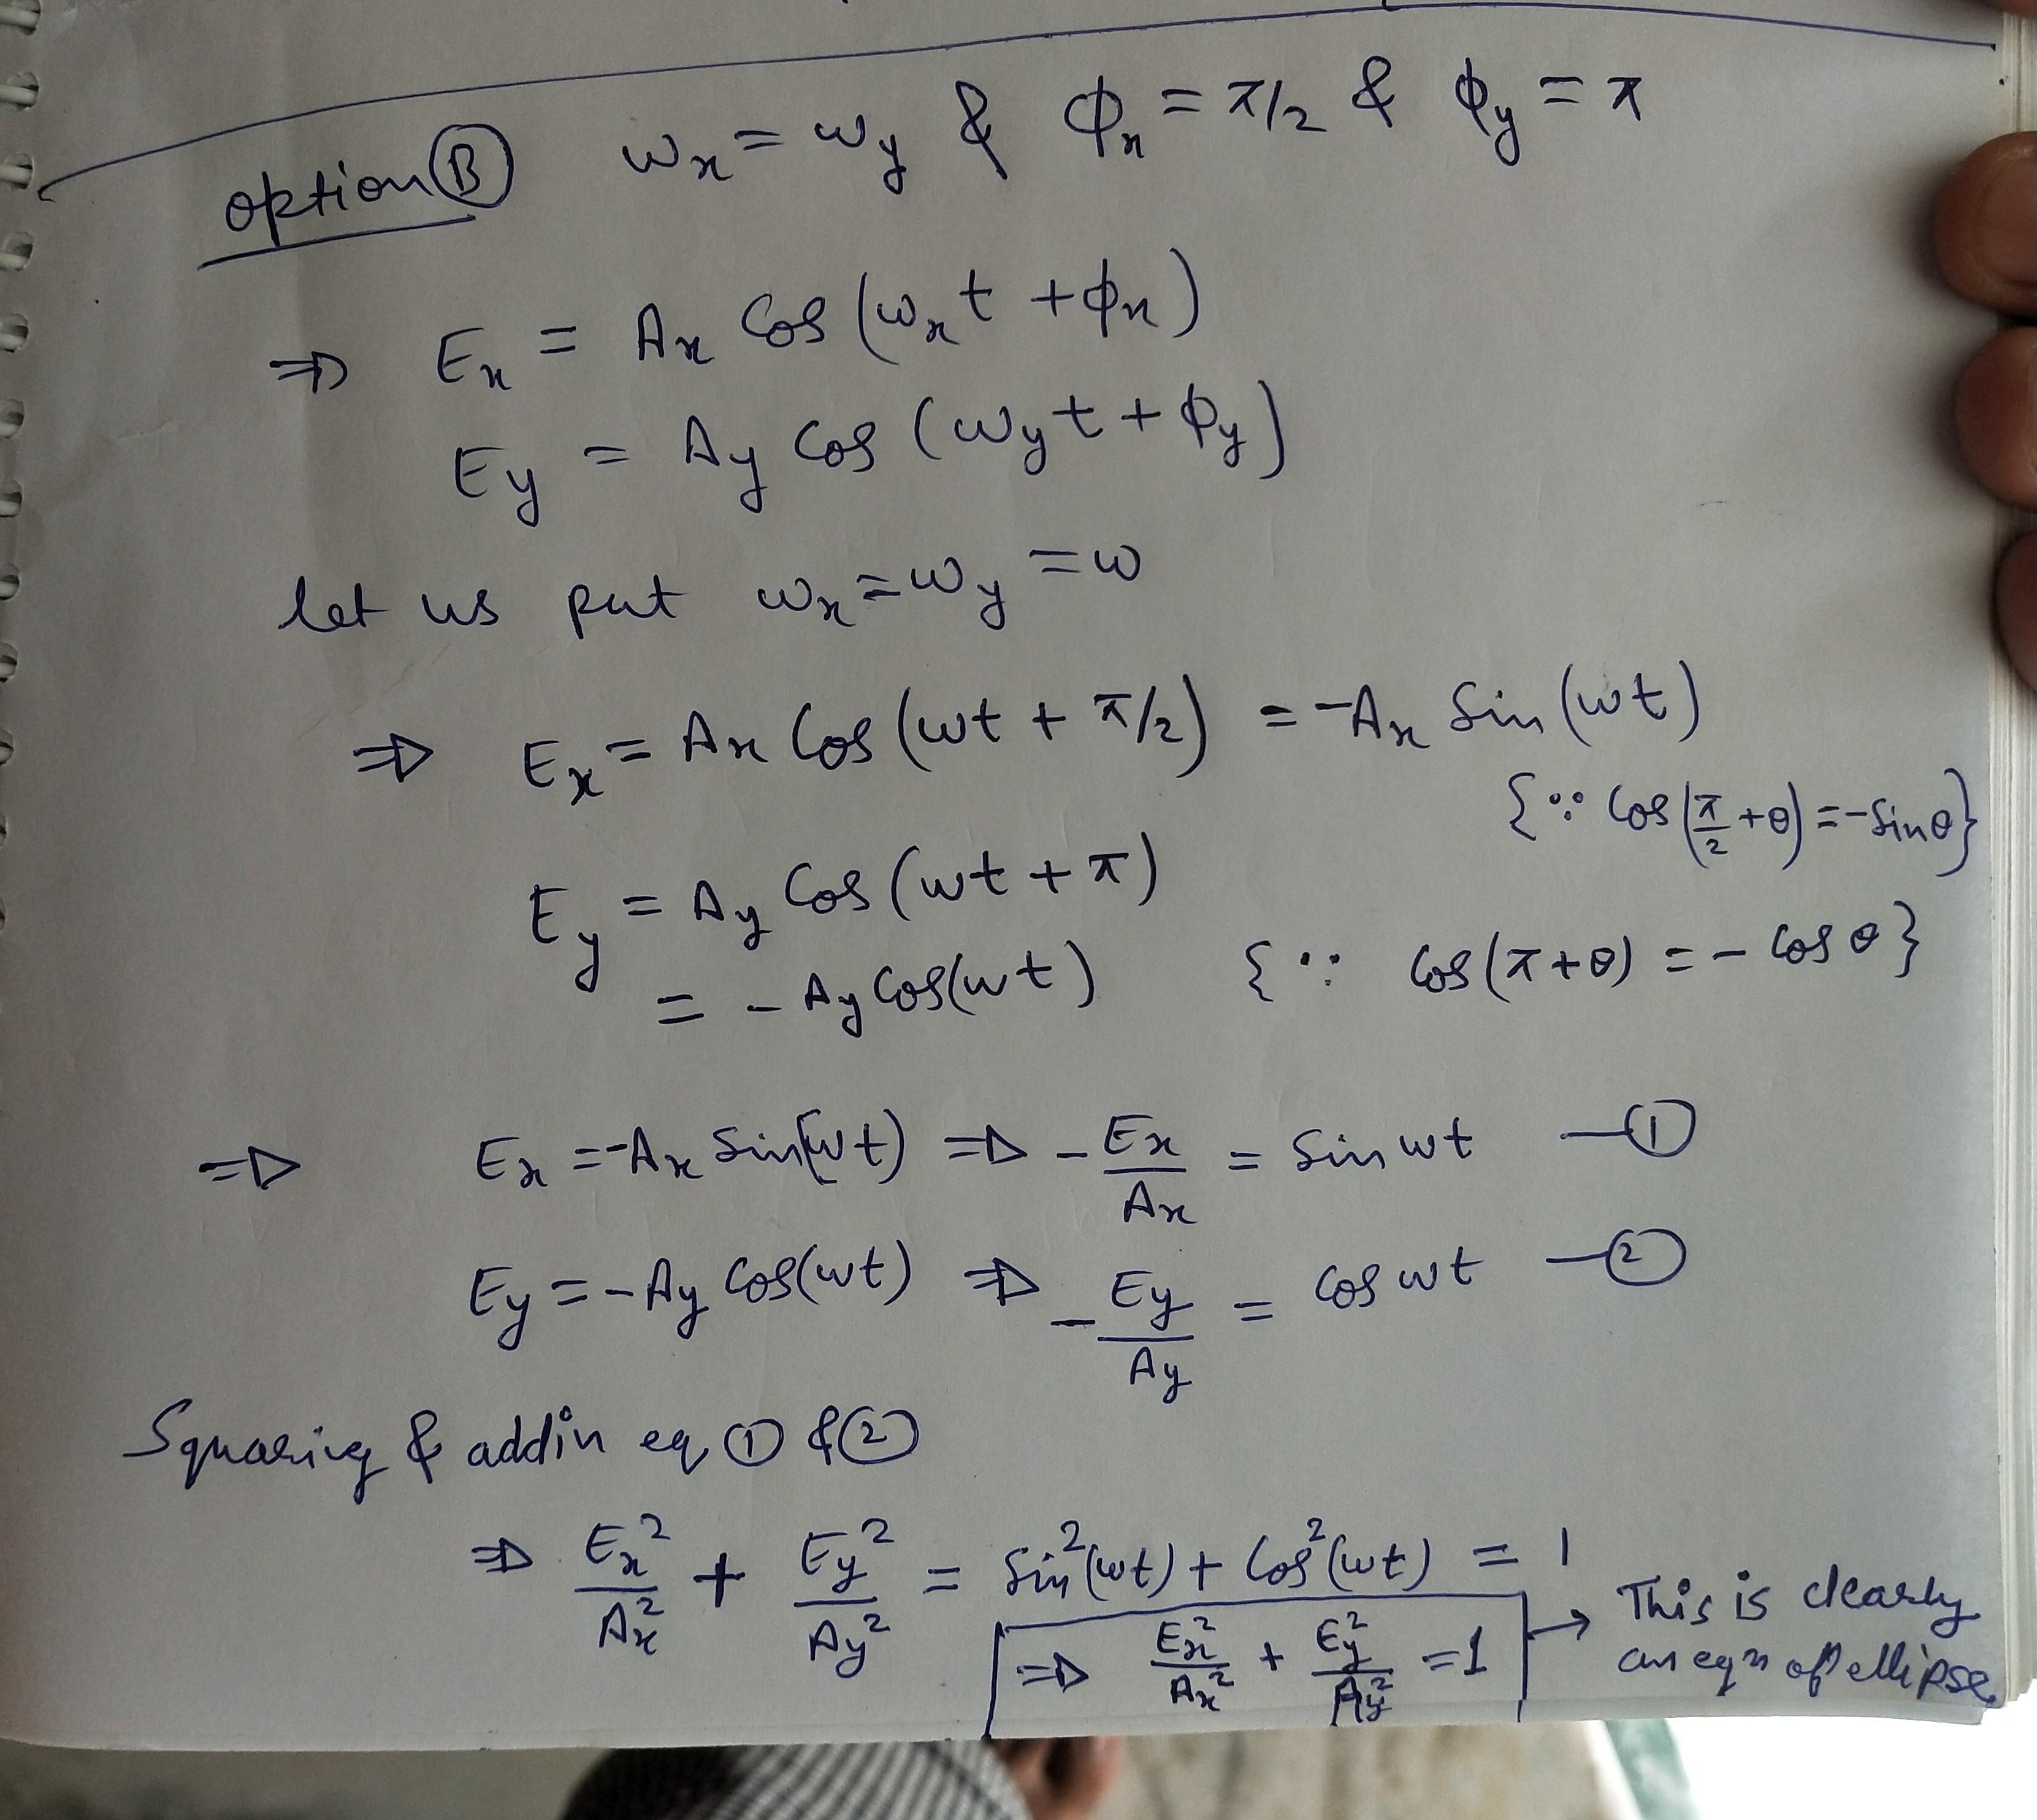 option Ⓑ ωx = ωy & ϕx = π/2 & ϕy = π
⇒ Ex = Ax Cos (ωxt + ϕx)
Ey = Ay Cos (ωyt + ϕy)
let us put ωx = ωy = ω
⇒ Ex = Ax Cos (ωt + π/2) = -Ax Sin (ωt)
{∵ Cos (π/2 + θ) = -Sin θ}
Ey = Ay Cos (ωt + π)
= - Ay Cos(ωt) {∵ Cos (π + θ) = - Cos θ}
⇒ Ex = -Ax Sin(ωt) ⇒ - Ex/Ax = Sin ωt —①
Ey = - Ay Cos(ωt) ⇒ - Ey/Ay = Cos ωt —②
Squaring & addin eq ① & ②
⇒ Ex²/Ax² + Ey²/Ay² = Sin²(ωt) + Cos²(ωt) = 1
⇒ Ex²/Ax² + Ey²/Ay² = 1 → This is clearly
an eqn of ellipse